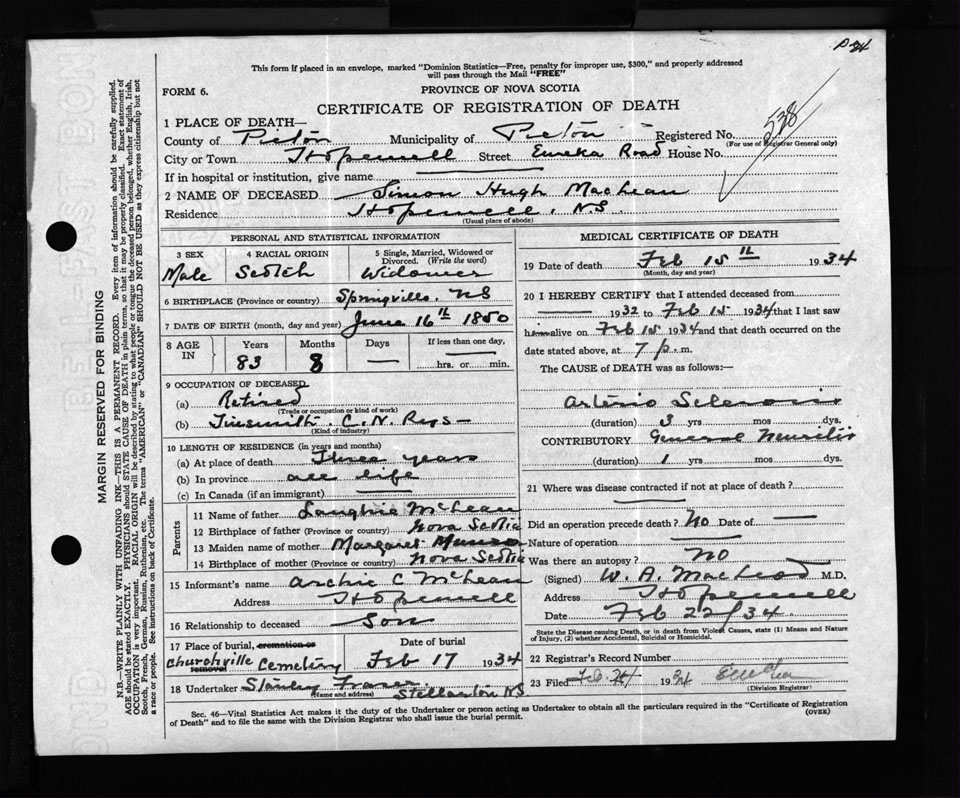 P-24
This form if placed in an envelope, marked "Dominion Statistics—Free, penalty for improper use, $300," and properly addressed
will pass through the Mail "FREE"
FORM 6.
PROVINCE OF NOVA SCOTIA
CERTIFICATE OF REGISTRATION OF DEATH
1 PLACE OF DEATH—
County of Pictou Municipality of Pictou Registered No. 538
(For use of Registrar General only)
City or Town Hopewell Street Eureka Road House No.
If in hospital or institution, give name
2 NAME OF DECEASED Simon Hugh MacLean
Residence Hopewell, N.S.
(Usual place of abode)
PERSONAL AND STATISTICAL INFORMATION
3 SEX 4 RACIAL ORIGIN 5 Single, Married, Widowed or
Divorced. (Write the word)
Male Scotch Widower
6 BIRTHPLACE (Province or country) Springville, NS
7 DATE OF BIRTH (month, day and year) June 16th 1850
8 AGE IN Years Months Days If less than one day,
83 8 — hrs. or min.
9 OCCUPATION OF DECEASED
(a) Retired
(Trade or occupation or kind of work)
(b) Tinsmith C.N. Rys—
(Kind of industry)
10 LENGTH OF RESIDENCE (in years and months)
(a) At place of death Three years
(b) In province all life
(c) In Canada (if an immigrant)
Parents
11 Name of father Laughie McLean
12 Birthplace of father (Province or country) Nova Scotia
13 Maiden name of mother Margaret Munro
14 Birthplace of mother (Province or country) Nova Scotia
15 Informant's name Archie C McLean
Address Hopewell
16 Relationship to deceased Son
17 Place of burial, cremation or removal Date of burial
Churchville Cemetery Feb 17 1934
18 Undertaker Stanley Fraser
(Name and address) Stellarton NS
MEDICAL CERTIFICATE OF DEATH
19 Date of death Feb 15th 1934
(Month, day and year)
20 I HEREBY CERTIFY that I attended deceased from
1932 to Feb 15 1934 that I last saw
him alive on Feb 15 1934 and that death occurred on the
date stated above, at 7 p. m.
The CAUSE of DEATH was as follows:—
Arterio Sclerosis
(duration) 3 yrs mos dys.
CONTRIBUTORY General Neuritis
(duration) 1 yrs mos dys.
21 Where was disease contracted if not at place of death?
Did an operation precede death? No Date of —
Nature of operation
Was there an autopsy? No
(Signed) W. A. MacLeod M.D.
Address Hopewell
Date Feb 22/34
State the Disease causing Death, or in death from Violent Causes, state (1) Means and Nature
of Injury, (2) whether Accidental, Suicidal or Homicidal.
22 Registrar's Record Number
23 Filed Feb. 24 1934
(Division Registrar)
Sec. 46—Vital Statistics Act makes it the duty of the Undertaker or person acting as Undertaker to obtain all the particulars required in the "Certificate of Registration
of Death" and to file the same with the Division Registrar who shall issue the burial permit.
(OVER)
MARGIN RESERVED FOR BINDING
N.B.—WRITE PLAINLY WITH UNFADING INK—THIS IS A PERMANENT RECORD. Every item of information should be carefully supplied.
AGE should be stated EXACTLY. PHYSICIANS should STATE CAUSE OF DEATH in plain terms, so that it may be properly classified. Exact statement of
OCCUPATION is very important. RACIAL ORIGIN will be described by stating to what people or tongue the deceased person belonged, whether English, Irish,
Scotch, French, German, Russian, Ruthenian, etc. The terms "AMERICAN" or "CANADIAN" SHOULD NOT BE USED as they express citizenship but not
a race or people. See instructions on back of Certificate.